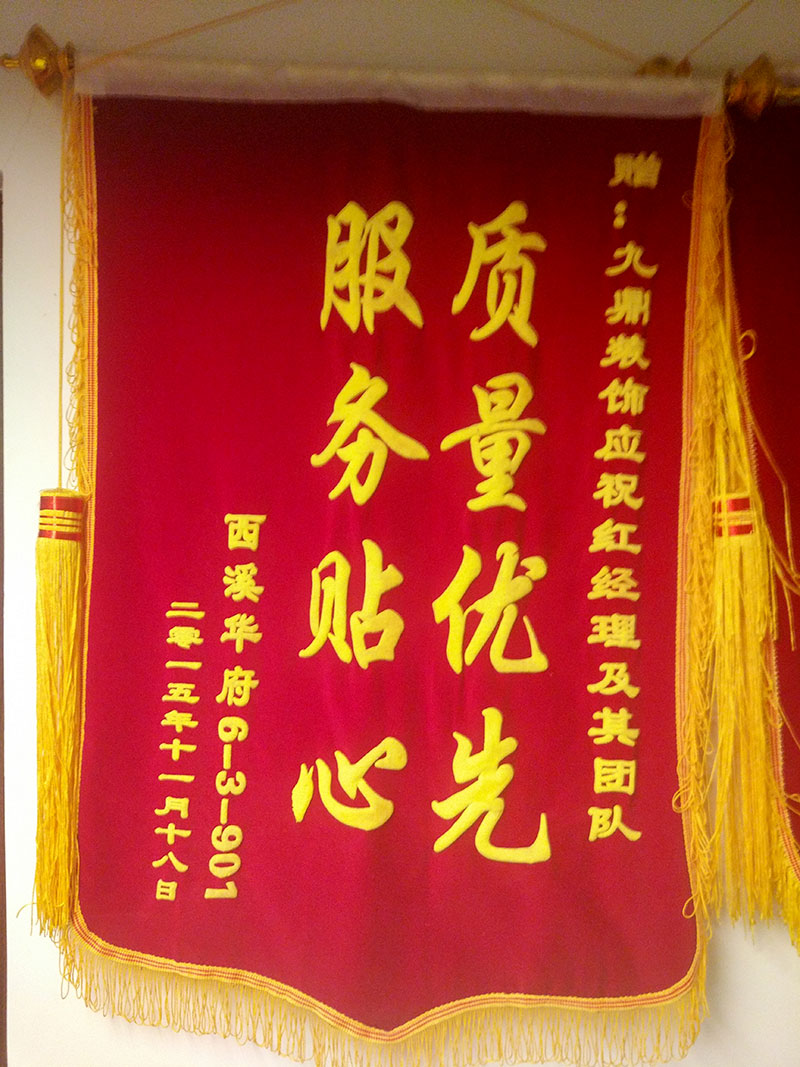 赠：九鼎装饰应祝红经理及其团队
质量优先
服务贴心
西溪华府6-3-901
二零一五年十一月十八日